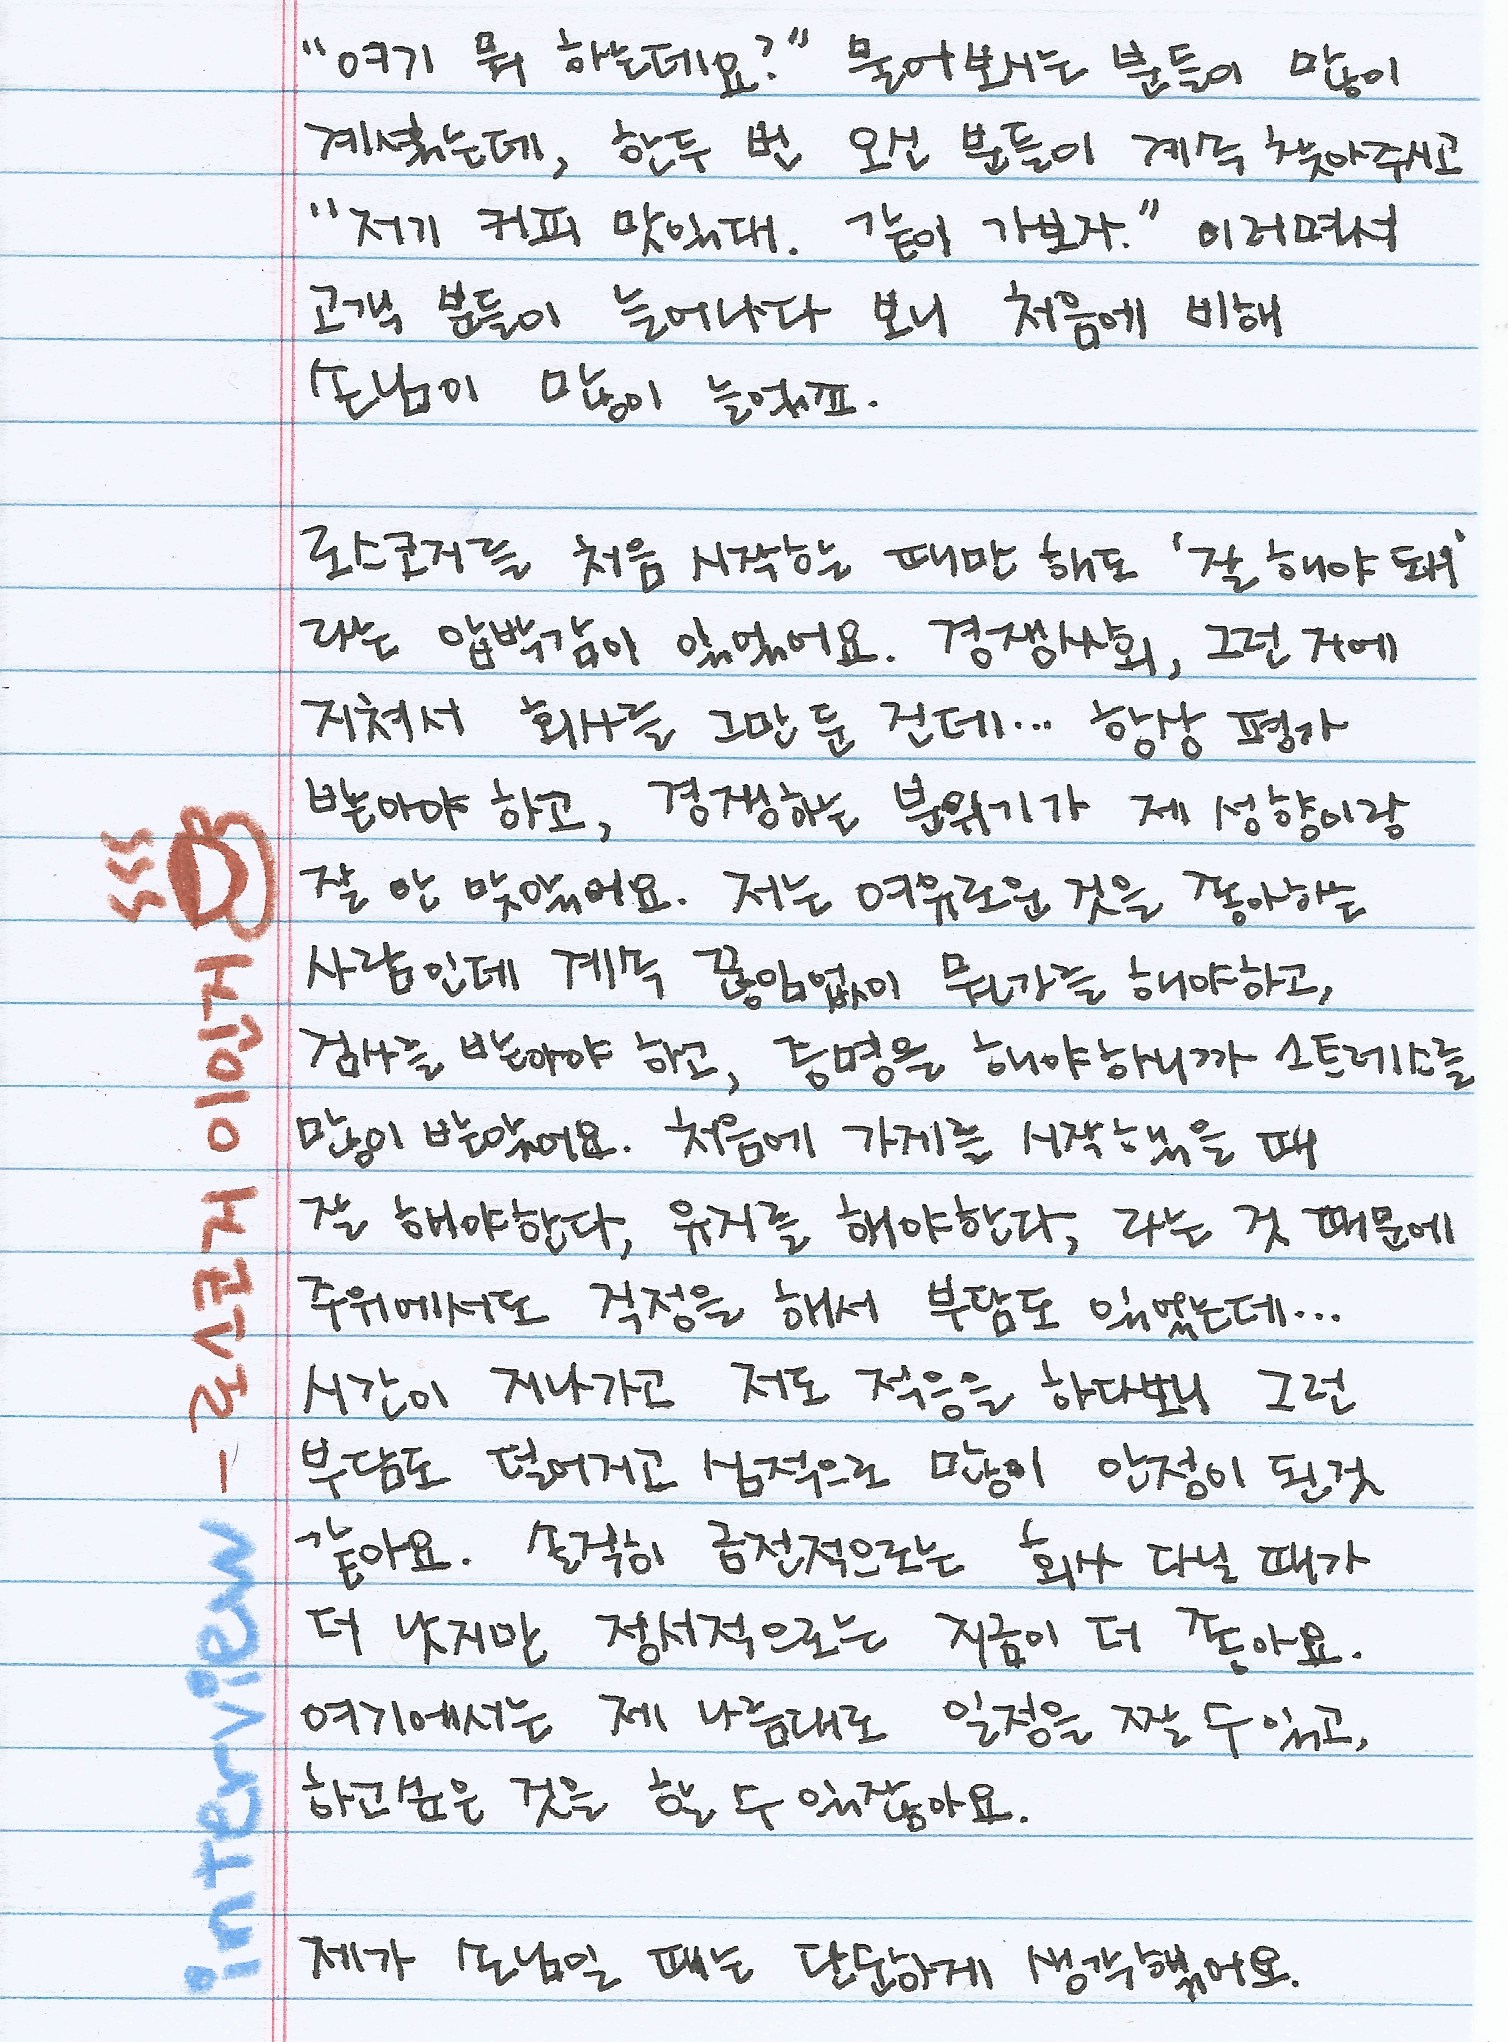 “여기 뭐 하는데요?” 물어보시는 분들이 많이
계셨는데, 한두 번 오신 분들이 계속 찾아주시고
“저기 커피 맛있대. 같이 가보자.” 이러면서
고객 분들이 늘어나다 보니 처음에 비해
손님이 많이 늘었죠.
로스코저를 처음 시작하는 때만 해도 ‘잘 해야 돼’
라는 압박감이 있었어요. 경쟁사회, 그런 거에
지쳐서 회사를 그만 둔 건데… 항상 평가
받아야 하고, 경쟁하는 분위기가 제 성향이랑
잘 안 맞았어요. 저는 여유로운 것을 좋아하는
사람인데 계속 끊임없이 뭔가를 해야하고,
검사를 받아야 하고, 증명을 해야하니까 스트레스를
많이 받았어요. 처음에 가게를 시작했을 때
잘 해야한다, 유지를 해야한다, 라는 것 때문에
주위에서도 걱정을 해서 부담도 있었는데…
시간이 지나가고 저도 적응을 하다보니 그런
부담도 덜어지고 심적으로 많이 안정이 된것
같아요. 솔직히 금전적으로는 회사 다닐 때가
더 낫지만 정서적으로는 지금이 더 좋아요.
여기에서는 제 나름대로 일정을 짤 수 있고,
하고싶은 것을 할 수 있잖아요.
제가 손님일 때는 단순하게 생각했어요.
interview - 로스코저 이인저